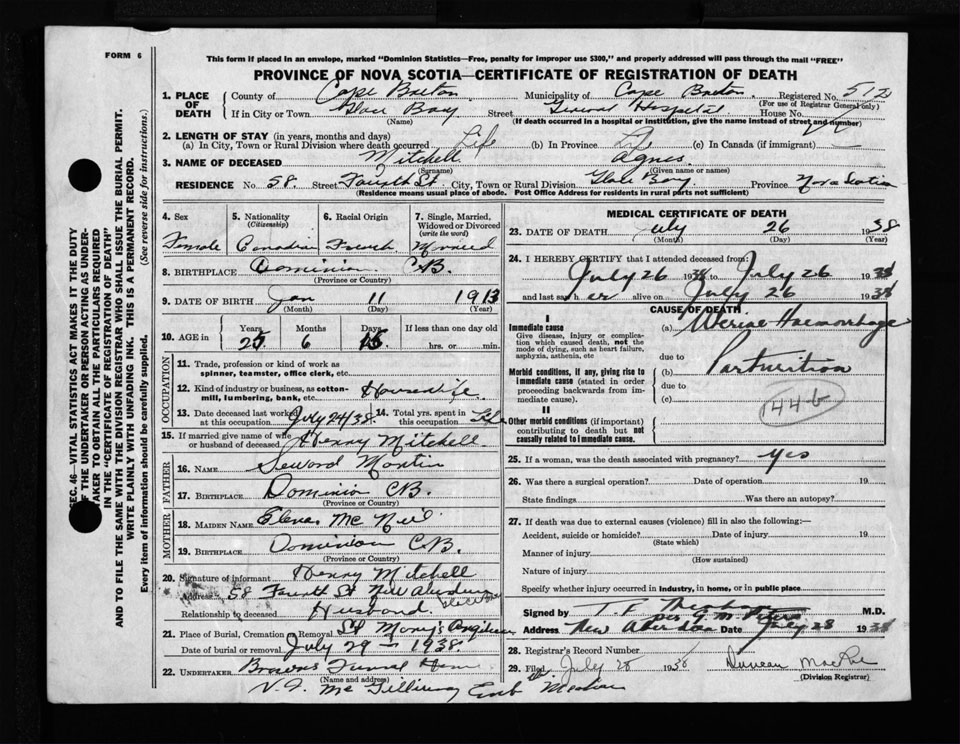 FORM 6
This form if placed in an envelope, marked "Dominion Statistics—Free, penalty for improper use $300," and properly addressed will pass through the mail "FREE"
PROVINCE OF NOVA SCOTIA—CERTIFICATE OF REGISTRATION OF DEATH
SEC. 46—VITAL STATISTICS ACT MAKES IT THE DUTY
OF THE UNDERTAKER OR PERSON ACTING AS UNDER-
TAKER TO OBTAIN ALL THE PARTICULARS REQUIRED
IN THE "CERTIFICATE OF REGISTRATION OF DEATH"
AND TO FILE THE SAME WITH THE DIVISION REGISTRAR WHO SHALL ISSUE THE BURIAL PERMIT.
WRITE PLAINLY WITH UNFADING INK. THIS IS A PERMANENT RECORD.
Every item of information should be carefully supplied. (See reverse side for instructions.)
1. PLACE OF DEATH
County of Cape Breton Municipality of Cape Breton Registered No. 512
(For use of Registrar General only)
If in City or Town Glace Bay Street General Hospital House No.
(Name) (If death occurred in a hospital or institution, give the name instead of street and number)
2. LENGTH OF STAY (in years, months and days)
(a) In City, Town or Rural Division where death occurred Life (b) In Province Life (c) In Canada (if immigrant)
3. NAME OF DECEASED Mitchell Agnes
(Surname) (Given name or names)
RESIDENCE No. 58 Street Fourth St. City, Town or Rural Division Glace Bay Province Nova Scotia
(Residence means usual place of abode. Post Office Address for residents in rural parts not sufficient)
4. Sex 5. Nationality (Citizenship) 6. Racial Origin 7. Single, Married, Widowed or Divorced (write the word)
Female Canadian French Married
8. BIRTHPLACE Dominion C.B.
(Province or Country)
9. DATE OF BIRTH Jan 11 1913
(Month) (Day) (Year)
10. AGE in Years Months Days If less than one day old
25 6 15 hrs. or min.
OCCUPATION
11. Trade, profession or kind of work as spinner, teamster, office clerk, etc.
12. Kind of industry or business, as cotton-mill, lumbering, bank, etc. Housewife
13. Date deceased last worked at this occupation July 24/38 14. Total yrs. spent in this occupation Life
15. If married give name of wife or husband of deceased Henry Mitchell
FATHER
16. NAME Martin
17. BIRTHPLACE Dominion C.B.
(Province or Country)
MOTHER
18. MAIDEN NAME Mc Neil
19. BIRTHPLACE Dominion C.B.
(Province or Country)
20. Signature of informant Henry Mitchell
Address 58 Fourth St New Aberdeen
Relationship to deceased Husband
21. Place of Burial, Cremation or Removal St
Date of burial or removal July 29 — 1938.
22. UNDERTAKER Funeral Home
(Name and address)
V. J. Mc Gillivray
MEDICAL CERTIFICATE OF DEATH
23. DATE OF DEATH July 26 1938
(Month) (Day) (Year)
24. I HEREBY CERTIFY that I attended deceased from:
July 26 1938 to July 26 1938
and last saw her alive on July 26 1938
CAUSE OF DEATH
I
Immediate cause
Give disease, injury or complication which caused death, not the mode of dying, such as heart failure, asphyxia, asthenia, etc
(a) Uterine Haemorrhage
due to
Morbid conditions, if any, giving rise to immediate cause (stated in order proceeding backwards from immediate cause).
(b) Parturition
due to
(c)
144 b
II
Other morbid conditions (if important) contributing to death but not causally related to immediate cause.
25. If a woman, was the death associated with pregnancy? yes
26. Was there a surgical operation? Date of operation 19
State findings Was there an autopsy?
27. If death was due to external causes (violence) fill in also the following:—
Accident, suicide or homicide? Date of injury 19
(State which)
Manner of injury
(How sustained)
Nature of injury
Specify whether injury occurred in industry, in home, or in public place
Signed by M.D.
Address New Aberdeen Date July 28 1938
28. Registrar's Record Number
29. Filed July 28 1938 Duncan MacRae
(Division Registrar)